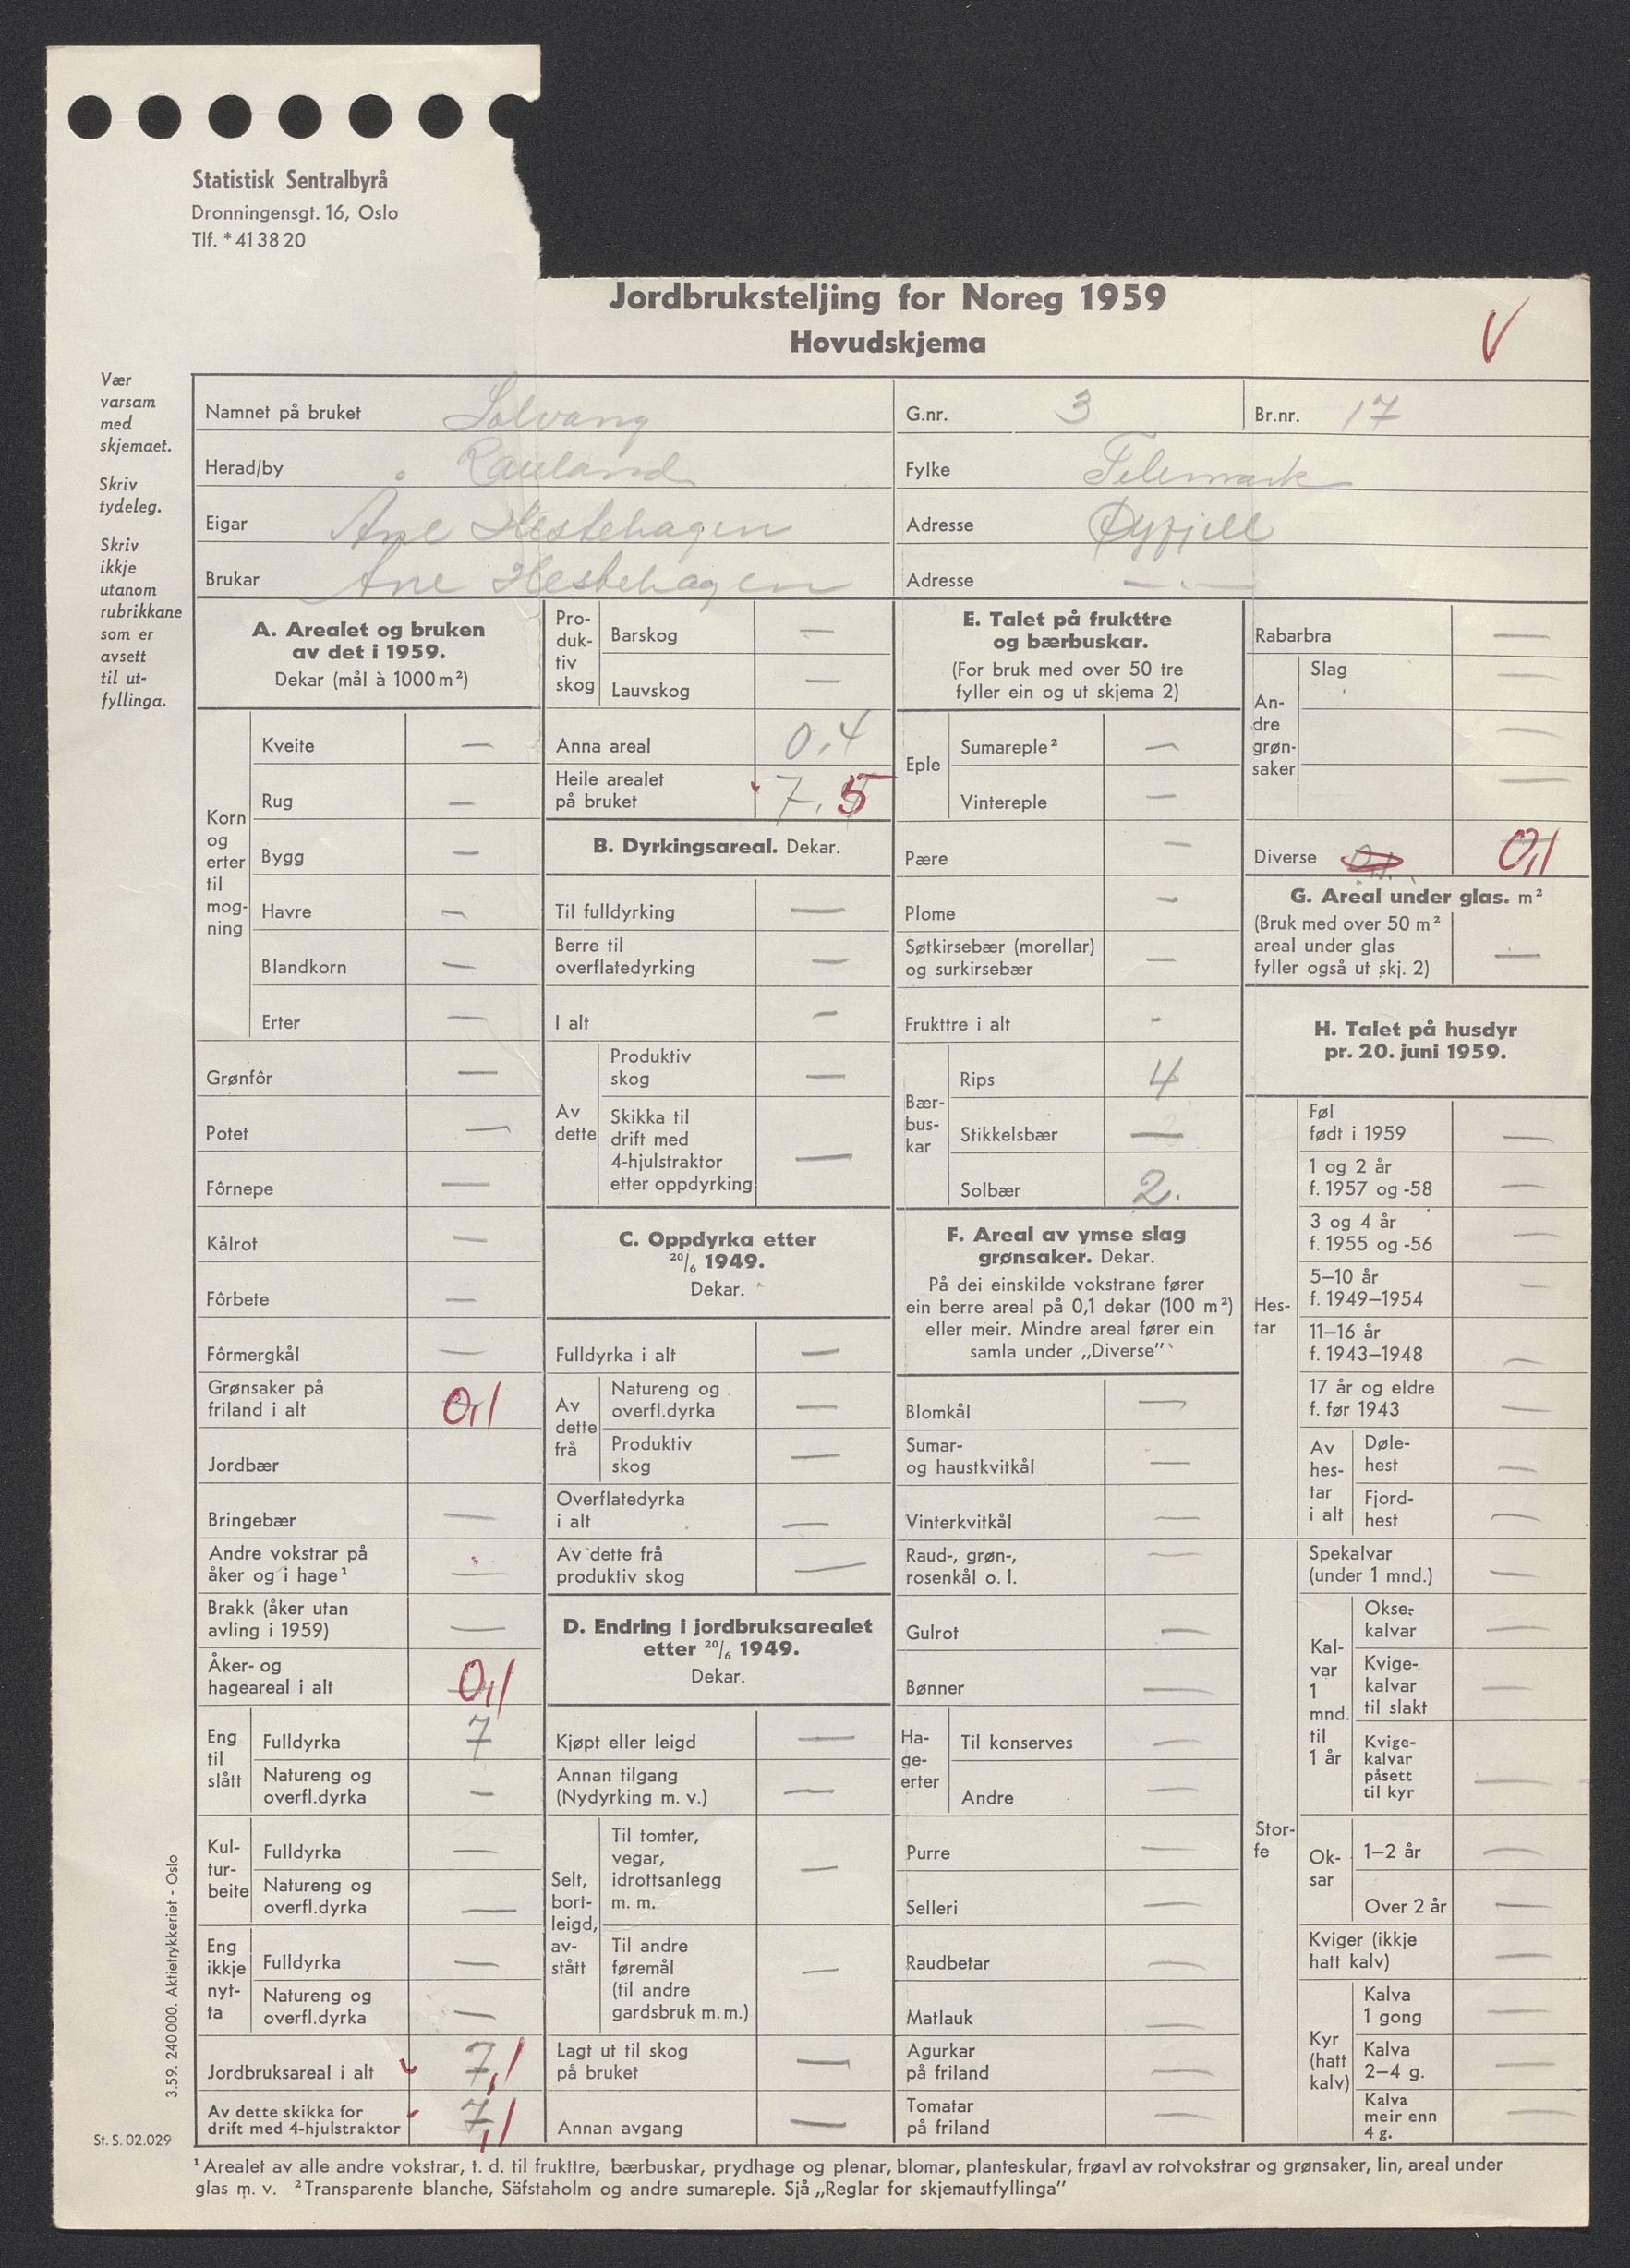 Statistisk Sentralbyrå
Dronningensgt. 16, Oslo
Tlf. * 41 38 20
Jordbruksteljing for Noreg 1959
Hovudskjema
V
Vær
varsam
med
skjemaet.
Skriv
tydeleg.
Skriv
ikkje
utanom
rubrikkane
som er
avsett
til ut-
fyllinga.
Namnet på bruket Solvang G.nr. 3 Br.nr. 17
Herad/by Rauland Fylke Telemark
Eigar Åne Hestehagen Adresse Øyfjell
Brukar Åne Hestehagen Adresse — " —
A. Arealet og bruken
av det i 1959.
Dekar (mål à 1000 m²)
Korn
og
erter
til
mog-
ning
Kveite —
Rug —
Bygg —
Havre —
Blandkorn —
Erter —
Grønfôr —
Potet —
Fôrnepe —
Kålrot —
Fôrbete —
Fôrmergkål —
Grønsaker på
friland i alt 0,1
Jordbær
Bringebær —
Andre vokstrar på
åker og i hage¹ —
Brakk (åker utan
avling i 1959) —
Åker- og
hageareal i alt 0,1
Eng
til
slått
Fulldyrka 7
Natureng og
overfl.dyrka —
Kul-
tur-
beite
Fulldyrka —
Natureng og
overfl.dyrka —
Eng
ikkje
nyt-
ta
Fulldyrka —
Natureng og
overfl.dyrka —
Jordbruksareal i alt 7,1
Av dette skikka for
drift med 4-hjulstraktor 7,1
Pro-
duk-
tiv
skog
Barskog —
Lauvskog —
Anna areal 0,4
Heile arealet
på bruket 7,5
B. Dyrkingsareal. Dekar.
Til fulldyrking —
Berre til
overflatedyrking —
I alt —
Av
dette
Produktiv
skog —
Skikka til
drift med
4-hjulstraktor
etter oppdyrking —
C. Oppdyrka etter
20/6 1949.
Dekar.
Fulldyrka i alt —
Av
dette
frå
Natureng og
overfl.dyrka —
Produktiv
skog —
Overflatedyrka
i alt —
Av dette frå
produktiv skog —
D. Endring i jordbruksarealet
etter 20/6 1949.
Dekar.
Kjøpt eller leigd —
Annan tilgang
(Nydyrking m. v.) —
Selt,
bort-
leigd,
av-
stått
Til tomter,
vegar,
idrottsanlegg
m. m. —
Til andre
føremål
(til andre
gardsbruk m. m.) —
Lagt ut til skog
på bruket —
Annan avgang —
E. Talet på frukttre
og bærbuskar.
(For bruk med over 50 tre
fyller ein og ut skjema 2)
Eple
Sumareple² —
Vintereple —
Pære —
Plome —
Søtkirsebær (morellar)
og surkirsebær —
Frukttre i alt -
Bær-
bus-
kar
Rips 4
Stikkelsbær —
Solbær 2.
F. Areal av ymse slag
grønsaker. Dekar.
På dei einskilde vokstrane fører
ein berre areal på 0,1 dekar (100 m²)
eller meir. Mindre areal fører ein
samla under „Diverse”
Blomkål —
Sumar-
og haustkvitkål —
Vinterkvitkål —
Raud-, grøn-,
rosenkål o. l. —
Gulrot —
Bønner —
Ha-
ge-
erter
Til konserves —
Andre —
Purre —
Selleri —
Raudbetar —
Matlauk —
Agurkar
på friland —
Tomatar
på friland —
Rabarbra —
An-
dre
grøn-
saker
Slag —
—
—
Diverse 0,1 0,1
G. Areal under glas. m²
(Bruk med over 50 m²
areal under glas
fyller også ut skj. 2) —
H. Talet på husdyr
pr. 20. juni 1959.
Hes-
tar
Føl
født i 1959 —
1 og 2 år
f. 1957 og -58 —
3 og 4 år
f. 1955 og -56 —
5–10 år
f. 1949–1954 —
11–16 år
f. 1943–1948 —
17 år og eldre
f. før 1943 —
Av
hes-
tar
i alt
Døle-
hest —
Fjord-
hest —
Stor-
fe
Spekalvar
(under 1 mnd.) —
Kal-
var
1
mnd.
til
1 år
Okse-
kalvar —
Kvige-
kalvar
til slakt —
Kvige-
kalvar
påsett
til kyr —
Ok-
sar
1–2 år —
Over 2 år —
Kviger (ikkje
hatt kalv) —
Kyr
(hatt
kalv)
Kalva
1 gong —
Kalva
2–4 g. —
Kalva
meir enn
4 g. —
3.59. 240 000. Aktietrykkeriet - Oslo
St. S. 02.029
¹ Arealet av alle andre vokstrar, t. d. til frukttre, bærbuskar, prydhage og plenar, blomar, planteskular, frøavl av rotvokstrar og grønsaker, lin, areal under
glas m. v. ² Transparente blanche, Säfstaholm og andre sumareple. Sjå „Reglar for skjemautfyllinga”